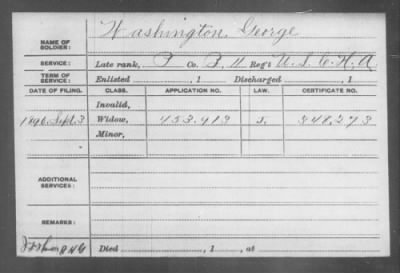 NAME OF SOLDIER: Washington, George
SERVICE: Late rank, P Co. B, 11 Reg't U.S.C.H.A.
TERM OF SERVICE: Enlisted , 1 Discharged , 1
DATE OF FILING. CLASS. APPLICATION NO. LAW. CERTIFICATE NO.
Invalid,
1890. Sept. 3 Widow, 453.413 J. 348.273
Minor,
ADDITIONAL SERVICES:
REMARKS:
Died , 1 , at